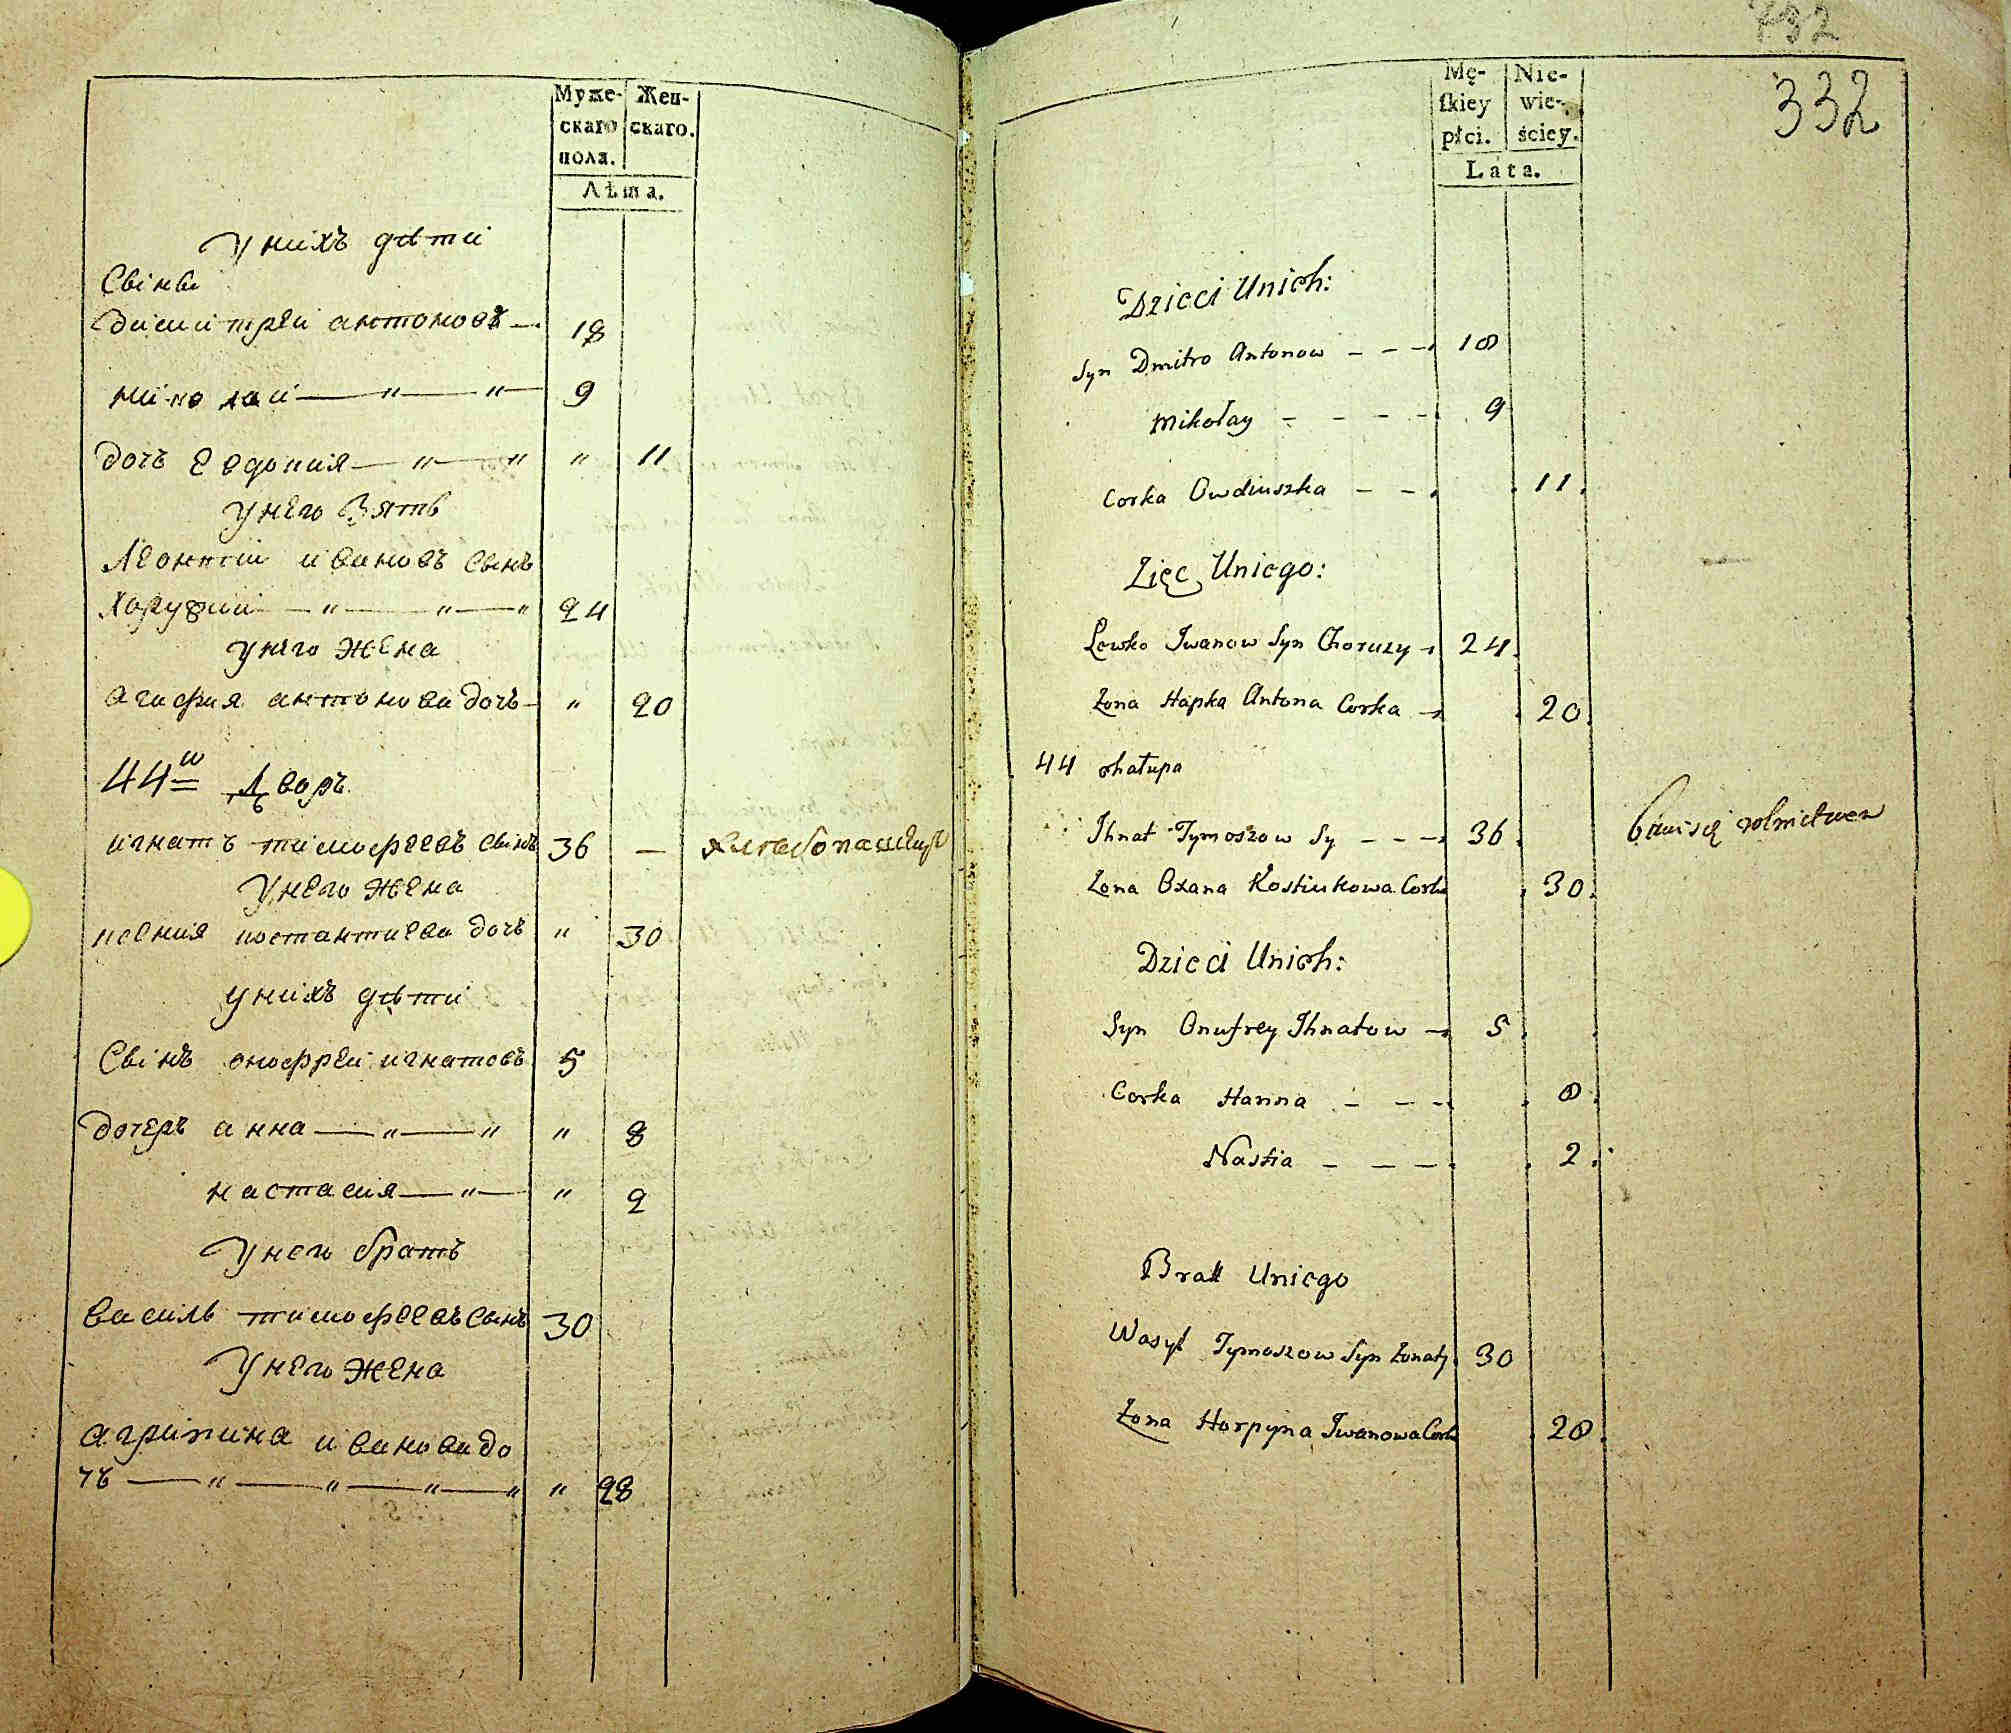 Муже- Жен-
скаго скаго.
пола.
Лѣта.
У нихъ дѣти
Свінві
Димитрей антоновъ — 18
николаи — " — " — 9
дочъ Евдокия — " — " " 11
У него Зять
Леонтіи ивановъ Сынъ
Хоружии — " — " — " 24
У него Жена
агафия антонова дочъ — " 20
44й Дворъ
игнатъ тимофеевъ Свінъ 36 — Хлебопашецъ
У него Жена
ксения костантиева дочъ " 30
у нихъ дѣти
Свінъ онофреи игнатовъ 5
дочеръ анна — " — " " 8
настасия — " — " 2
У него братъ
василь тимофеевъ Сынъ 30
У него Жена
агрипина иванова до
чъ — " — " — " — " " 28
732
332
Mę- Nie-
skiey wie-
płci. ściey.
Lata.
Dzieci Unich:
Syn Dmitro Antonow - - - 18
Mikołay - - - - 9
Corka Owdiuszka - - 11
Zięc Uniego:
Lewko Iwanow Syn Choruzy 24
Zona Hapka Antona Corka 20
44 chałupa
Ihnat Tymoszow Sy - - - 36 bawi się rolnictwem
Zona Oxana Kostiukowa Corka 30
Dzieci Unich:
Syn Onufrey Ihnatow - 5
Corka Hanna - - - 8
Nastia - - - 2
Bratt Uniego
Wasyl Tymoszow Syn Zonaty 30
Zona Horpyna Iwanowa Corka 28